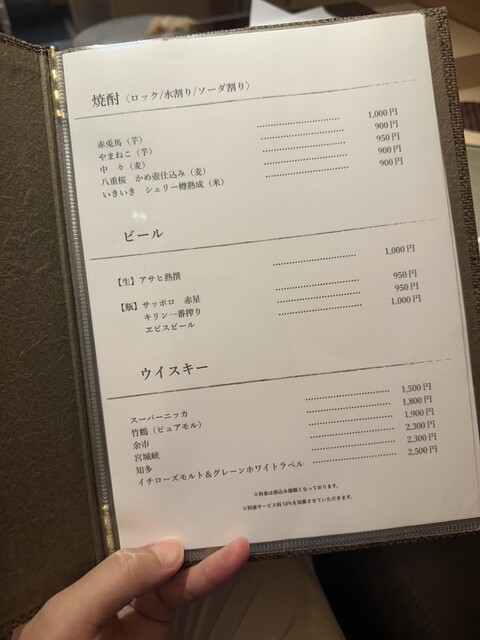 焼酎〈ロック/水割り/ソーダ割り〉
赤兎馬（芋） ……………………… 1,000円
やまねこ（芋） ……………………… 900円
中 々（麦） ……………………… 950円
八重桜 かめ壺仕込み（麦） ……………………… 900円
いきいき シェリー樽熟成（米） ……………………… 900円
ビール
【生】アサヒ熟撰 ……………………… 1,000円
【瓶】サッポロ 赤星 ……………………… 950円
キリン一番搾り ……………………… 950円
ヱビスビール ……………………… 1,000円
ウイスキー
スーパーニッカ ……………………… 1,500円
竹鶴（ピュアモル） ……………………… 1,800円
余市 ……………………… 1,900円
宮城峡 ……………………… 2,300円
知多 ……………………… 2,300円
イチローズモルト＆グレーンホワイトラベル ……………………… 2,500円
※料金は税込み価額となっております。
※別途サービス料10%を加算させていただきます。